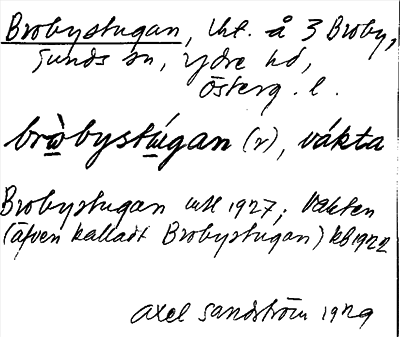 Brobystugan, lht. å 3 Broby,
Sunds sn, Ydre hd,
Österg. l.
brὼbystẃgan (r), vákta
Brobystugan mtl 1927; Vakten
(äfven kalladt Brobystugan) kb 1922
Axel Sandström 1929